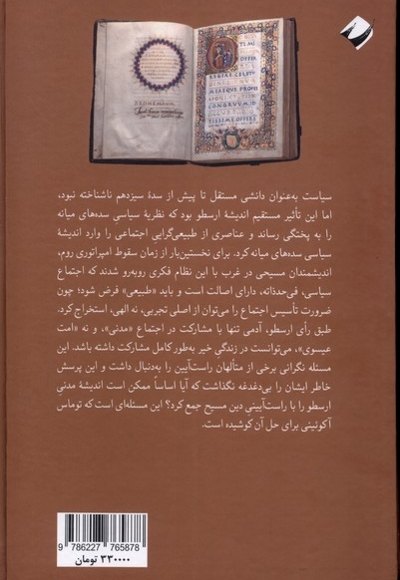 سیاست به‌عنوان دانشی مستقل تا پیش از سدهٔ سیزدهم ناشناخته نبود،
اما این تأثیر مستقیم اندیشهٔ ارسطو بود که نظریهٔ سیاسی سده‌های میانه
را به پختگی رساند و عناصری از طبیعی‌گرایی اجتماعی را وارد اندیشهٔ
سیاسی سده‌های میانه کرد. برای نخستین‌بار از زمان سقوط امپراتوری روم،
اندیشمندان مسیحی در غرب با این نظام فکری روبه‌رو شدند که اجتماع
سیاسی، فی‌حدذاته، دارای اصالت است و باید «طبیعی» فرض شود؛ چون
ضرورت تأسیس اجتماع را می‌توان از اصلی تجربی، نه الهی، استخراج کرد.
طبق رأی ارسطو، آدمی تنها با مشارکت در اجتماع «مدنی»، و نه «امت
عیسوی»، می‌توانست در زندگیِ خیر به‌طور کامل مشارکت داشته باشد. این
مسئله نگرانی برخی از متألهان راست‌آیین را به‌دنبال داشت و این پرسش
خاطر ایشان را بی‌دغدغه نگذاشت که آیا اساساً ممکن است اندیشهٔ مدنیِ
ارسطو را با راست‌آیینی دین مسیح جمع کرد؟ این مسئله‌ای است که توماس
آکوئینی برای حل آن کوشیده است.
9 786227 765878
۳۳۰۰۰۰ تومان